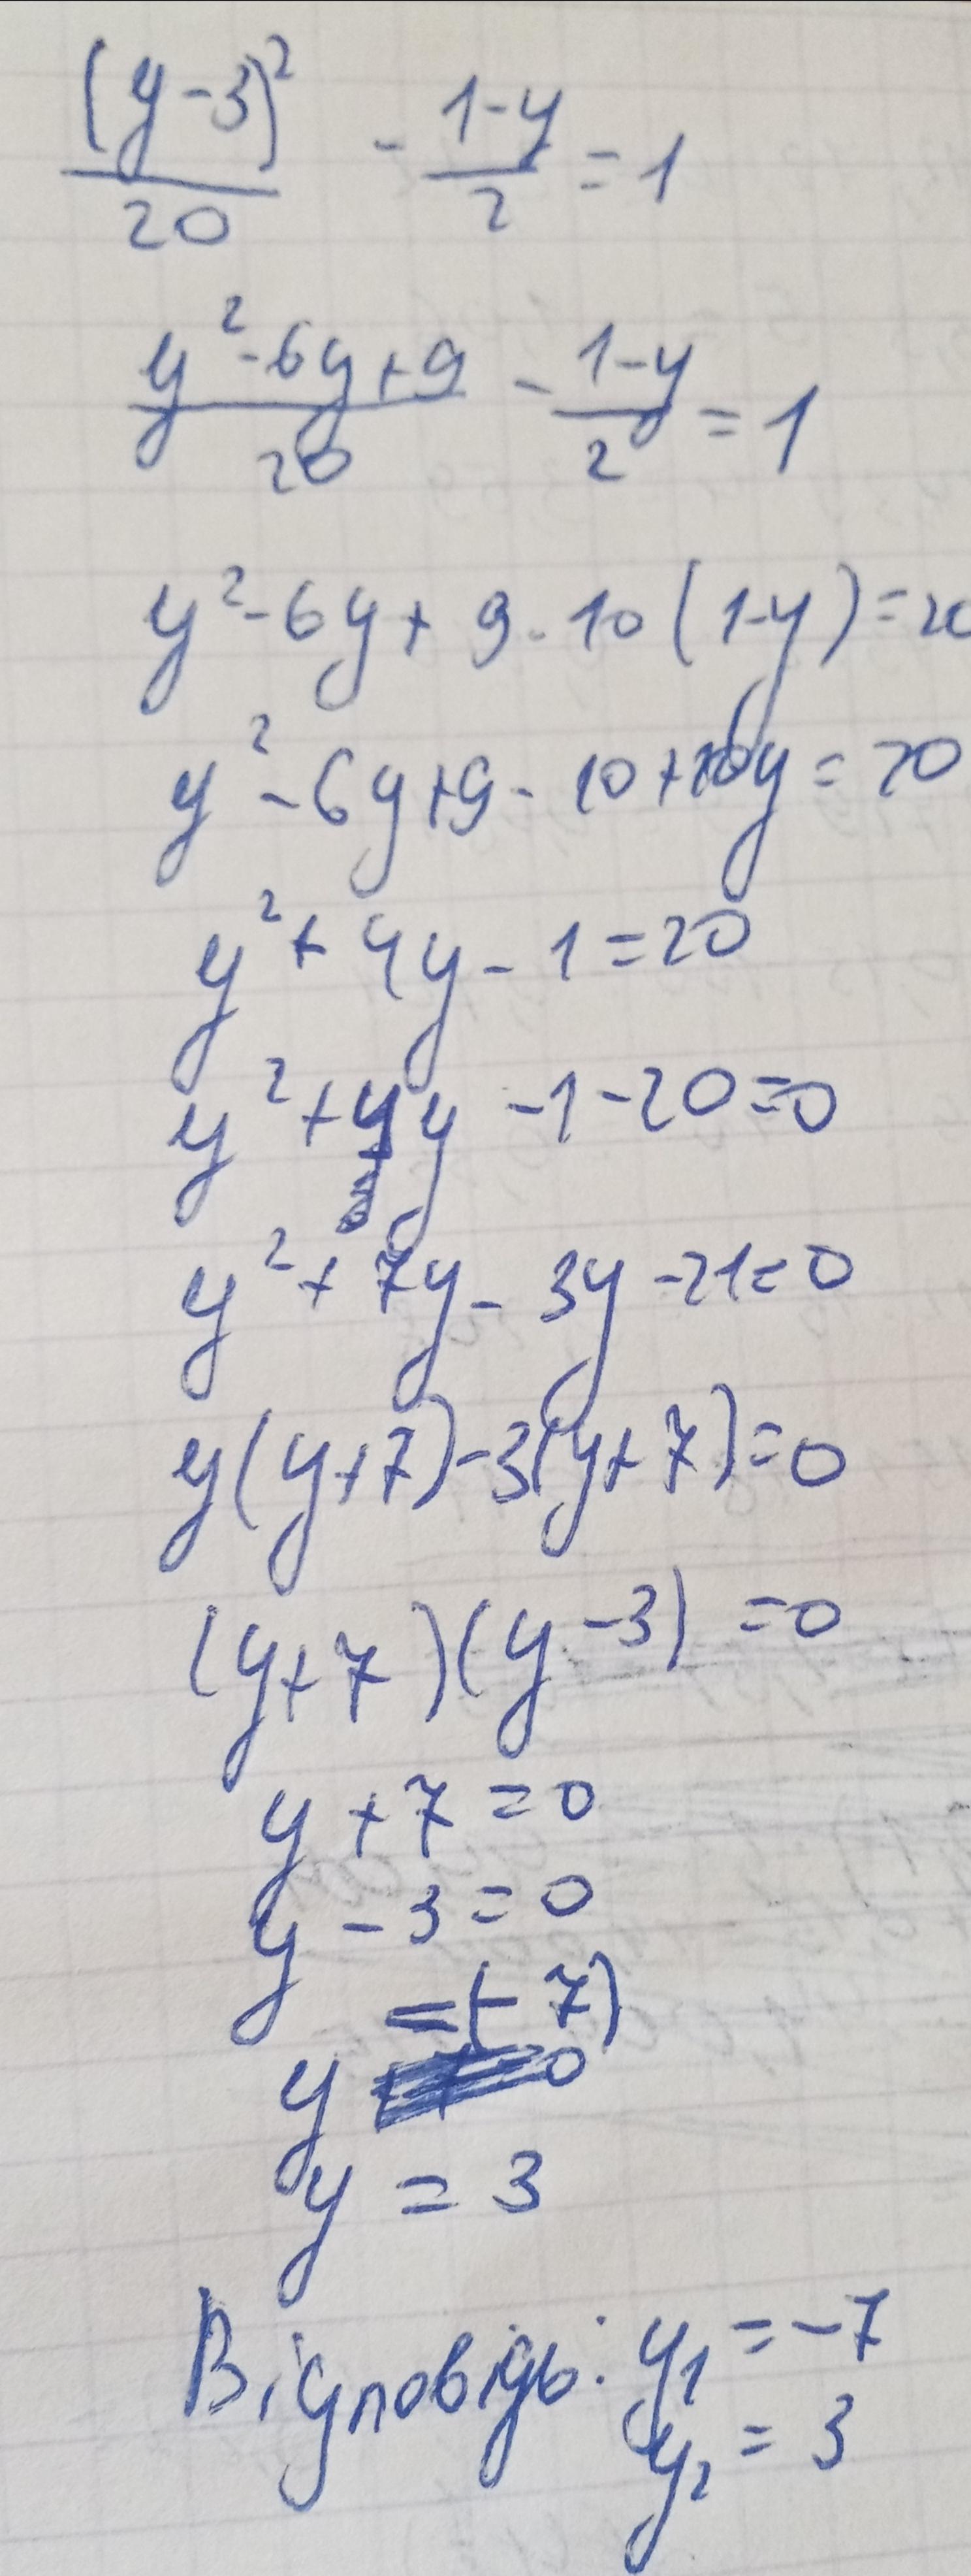 (y-3)²/20 - (1-y)/2 = 1
(y²-6y+9)/20 - (1-y)/2 = 1
y²-6y+9-10(1-y)=20
y²-6y+9-10+10y=20
y²+4y-1=20
y²+4y-1-20=0
y²+7y-3y-21=0
y(y+7)-3(y+7)=0
(y+7)(y-3)=0
y+7=0
y-3=0
y=(-7)
y=3
Відповідь: y₁=-7
y₂=3